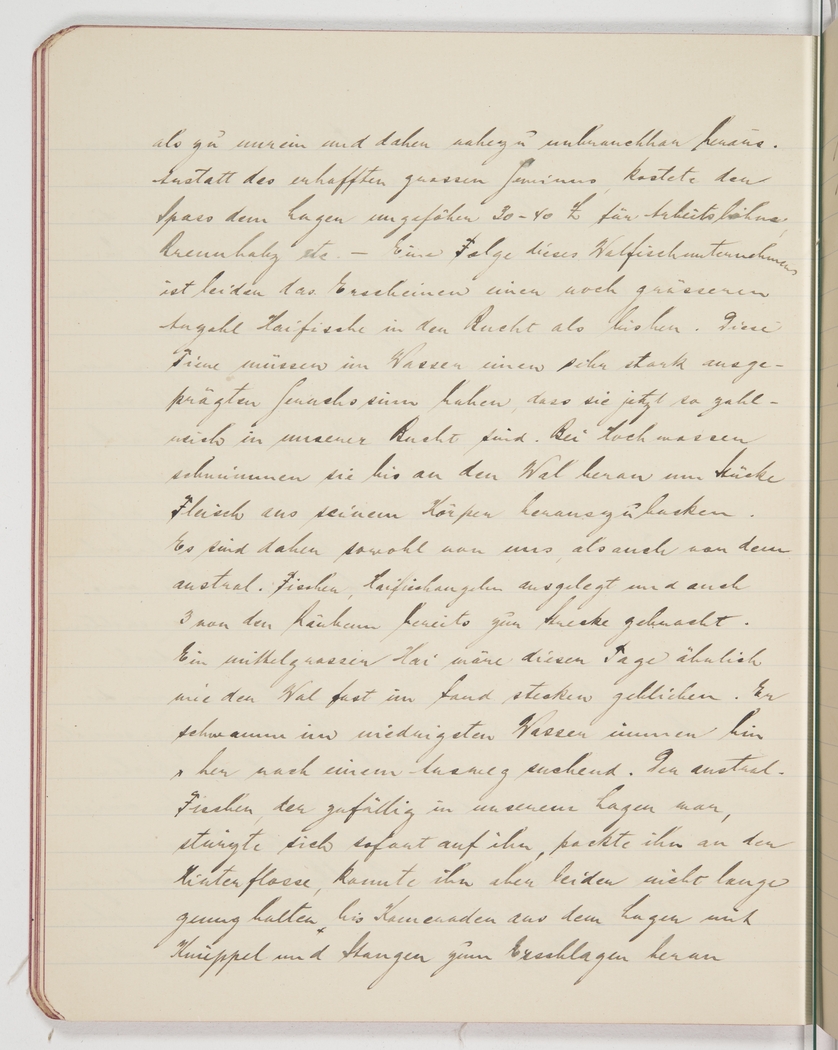 als zu unrein und daher nahezu unbrauchbar heraus.
Anstatt des erhofften grossen Gewinns, kostete der
Spass dem Lagen ungefähr 30-40 £ für Arbeitslöhne,
Brennholz etc. — Eine Folge dieses Walfischunternehmens
ist leider das Erscheinen einer noch grösseren
Anzahl Haifische in der Bucht als bisher. Diese
Tiere müssen im Wasser einen sehr stark ausge-
prägten Geruchssinn haben, dass sie jetzt so zahl-
reich in unserer Bucht sind. Bei Hochwasser
schwimmen sie bis an den Wal heran um Stücke
Fleisch aus seinem Körper herauszuhacken.
Es sind daher sowohl von uns, als auch von dem
austral. Fischer, Haifischangeln ausgelegt und auch
3 von den Räubern bereits zur Strecke gebracht.
Ein mittelgrosser Hai wäre dieser Tage ähnlich
wie der Wal fast im Sand stecken geblieben. Er
schwamm im niedrigsten Wasser immer hin
& her nach einem Ausweg suchend. Der austral.
Fischer, der zufällig in unserem Lagen war,
stürzte sich sofort auf ihn, packte ihn an der
Hinterflosse, konnte ihn aber leider nicht lange
genug halten, bis Kameraden aus dem Lagen mit
Knüppel und Stangen zum Erschlagen heran